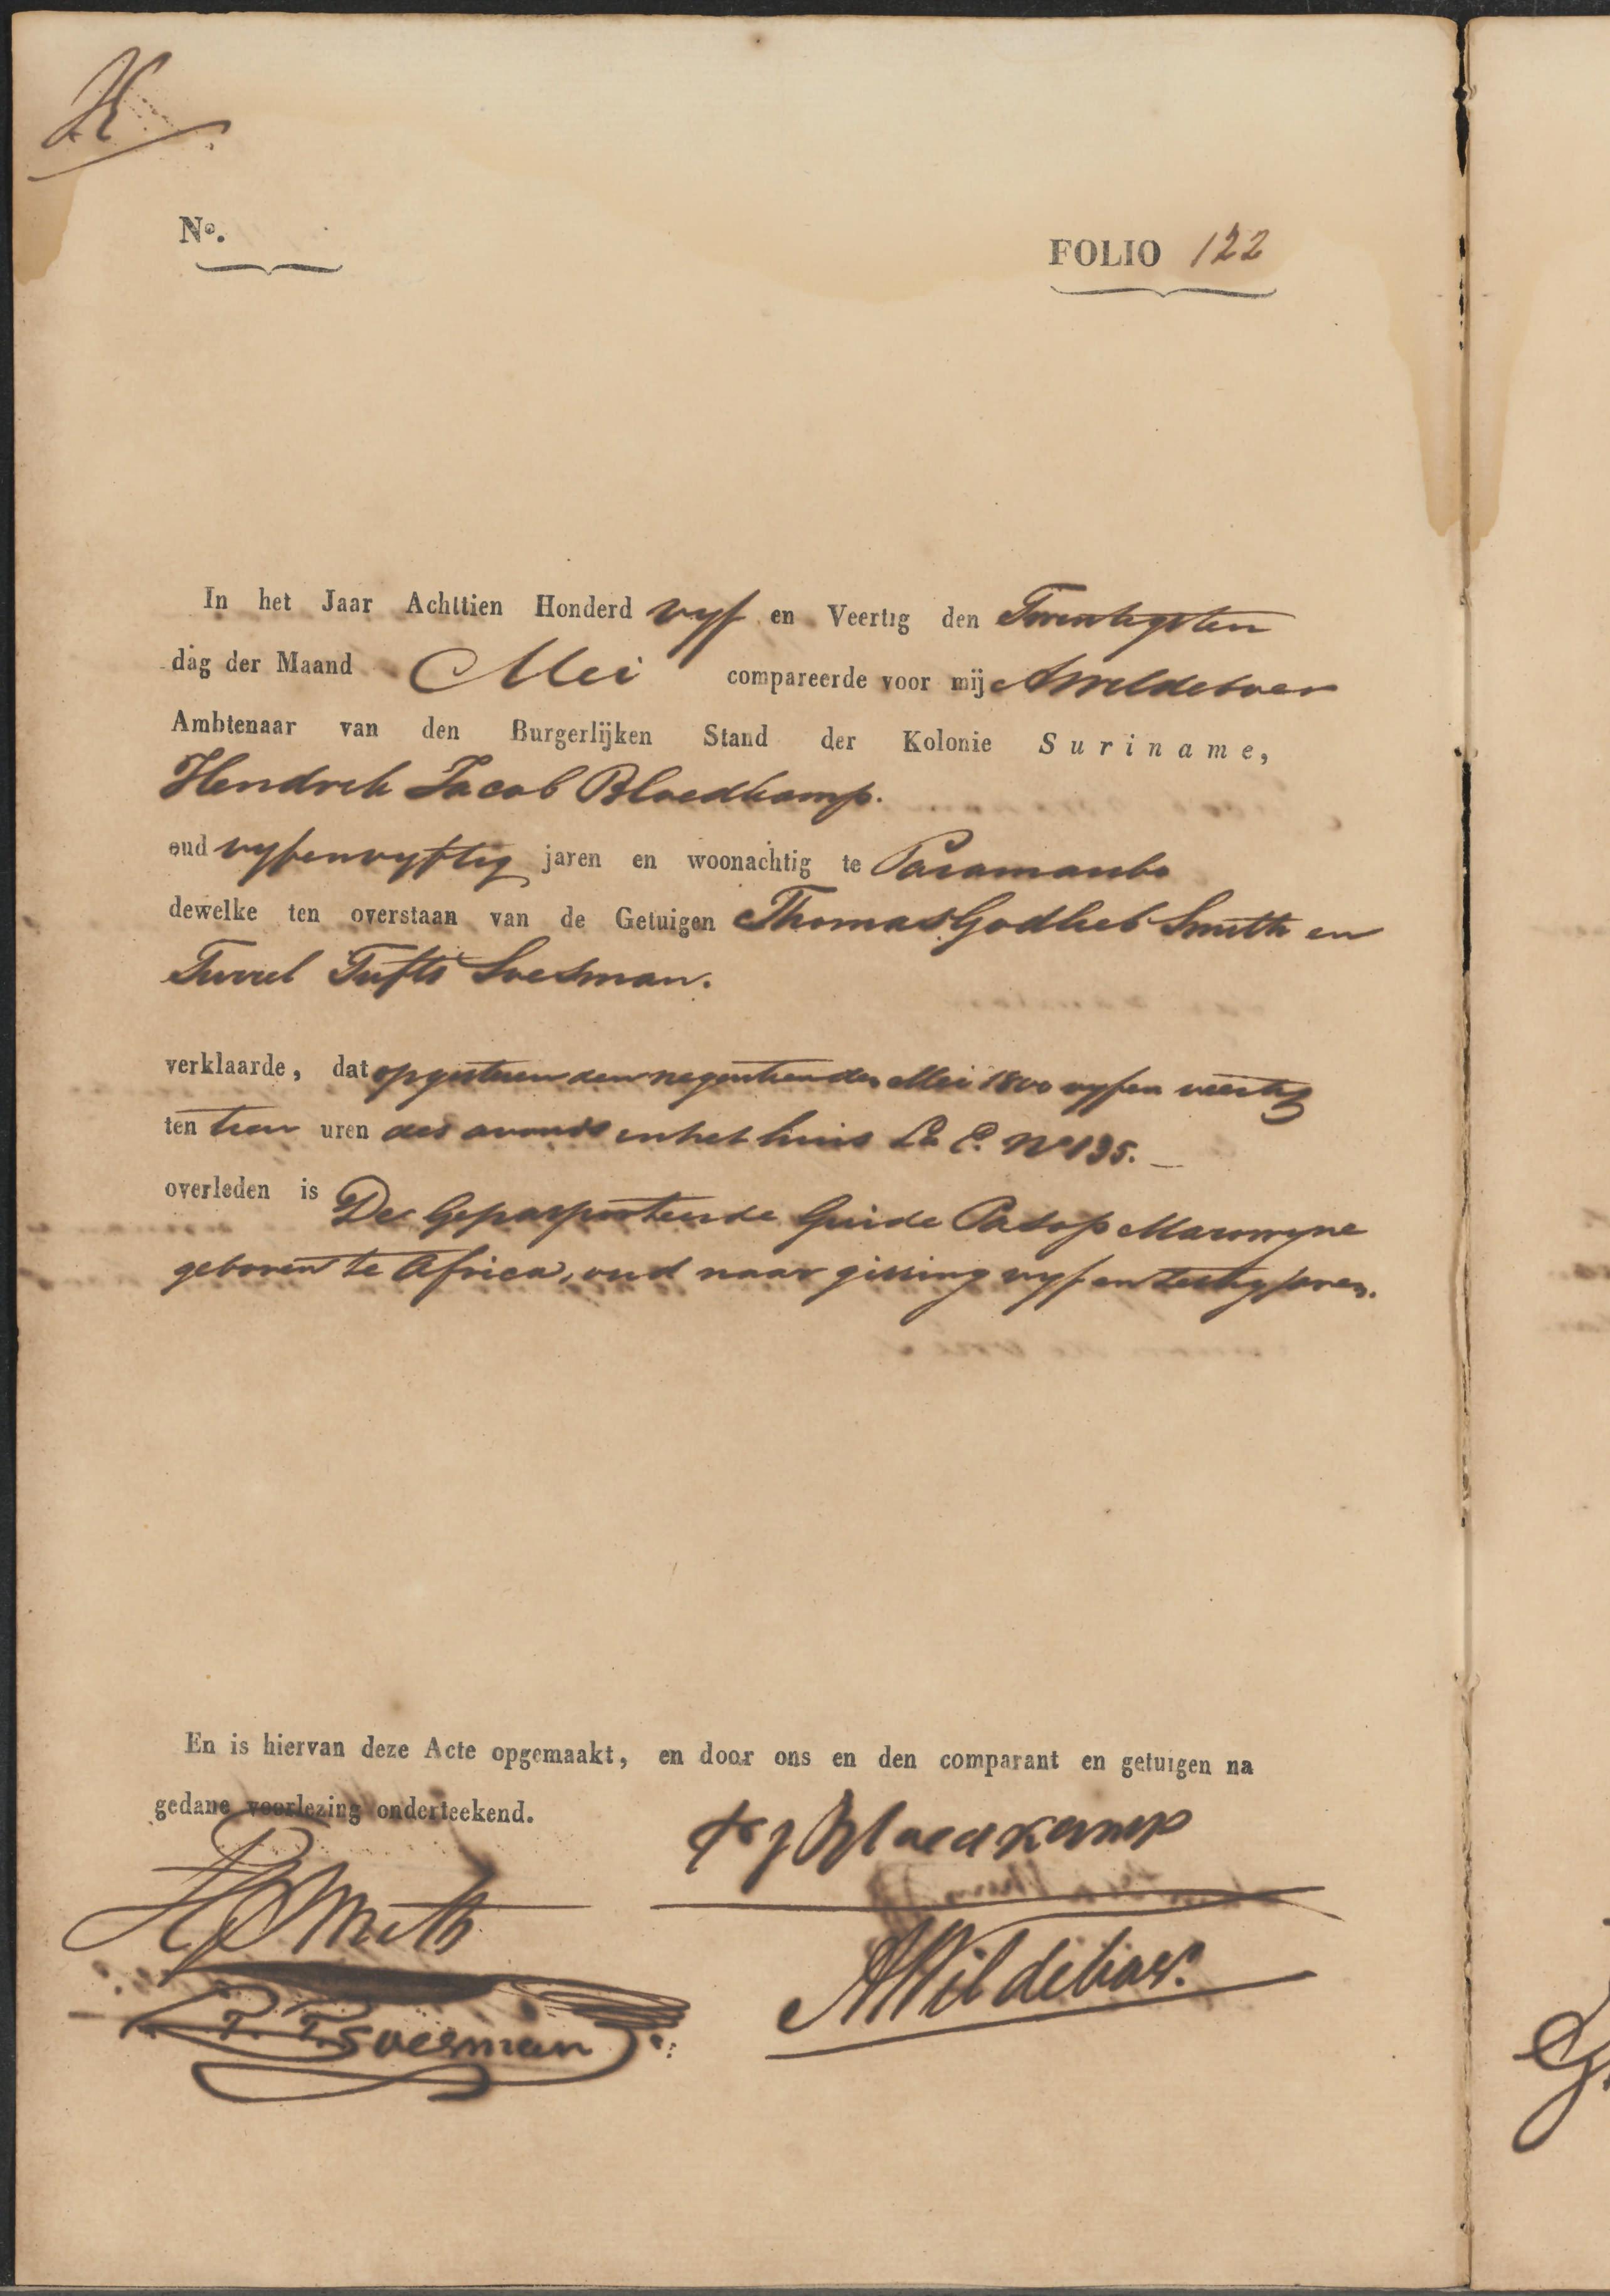 N°.
FOLIO 122
In het Jaar Achttien Honderd vyf en Veertig den Twintigsten
dag der Maand Mei compareerde voor mij A Wildeboer
Ambtenaar van den Burgerlijken Stand der Kolonie Suriname,
Hendrik Jacob Bloedkamp.
oud vyfenvyftig jaren en woonachtig te Paramaribo
dewelke ten overstaan van de Getuigen Thomas Godlieb Smith en
Tufts Soesman.
verklaarde, dat op gisteren den negentienden Mei 1800 vyfen veertig
ten tien uren des avonds in het huis La E. N° 135.
overleden is De Gepasporteerde Guide Pasop Marowyne
geboren te Africa, oud naar gissing vyf en zestig jaren.
En is hiervan deze Acte opgemaakt, en door ons en den comparant en getuigen na
gedane voorlezing onderteekend.
H J Bloedkamp
Smith
AWildeboer.
T. T. Soesman